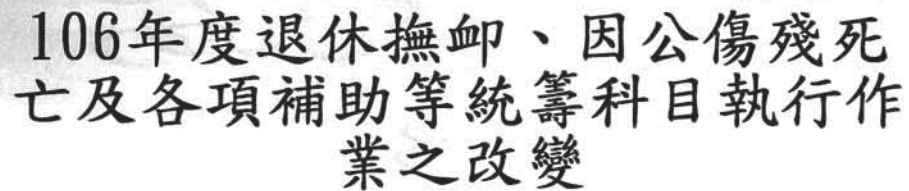 106年度退休撫卹、因公傷殘死
亡及各項補助等統籌科目執行作
業之改變